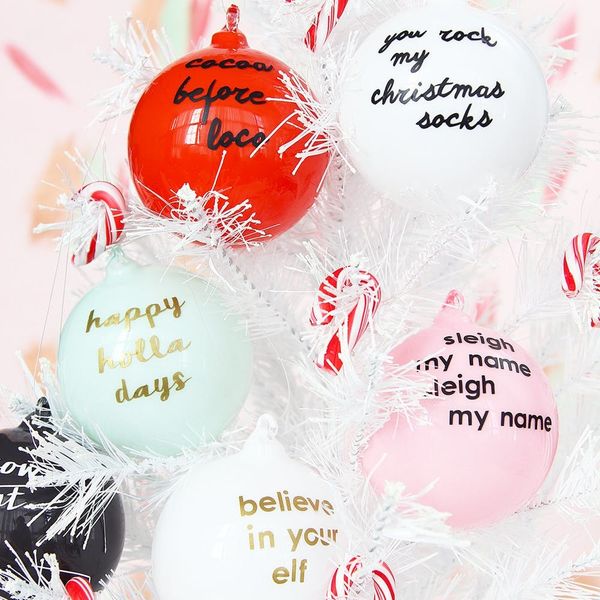 cocoa
before
loco
you rock
my
christmas
socks
happy
holla
days
sleigh
my name
sleigh
my name
believe
in your
elf